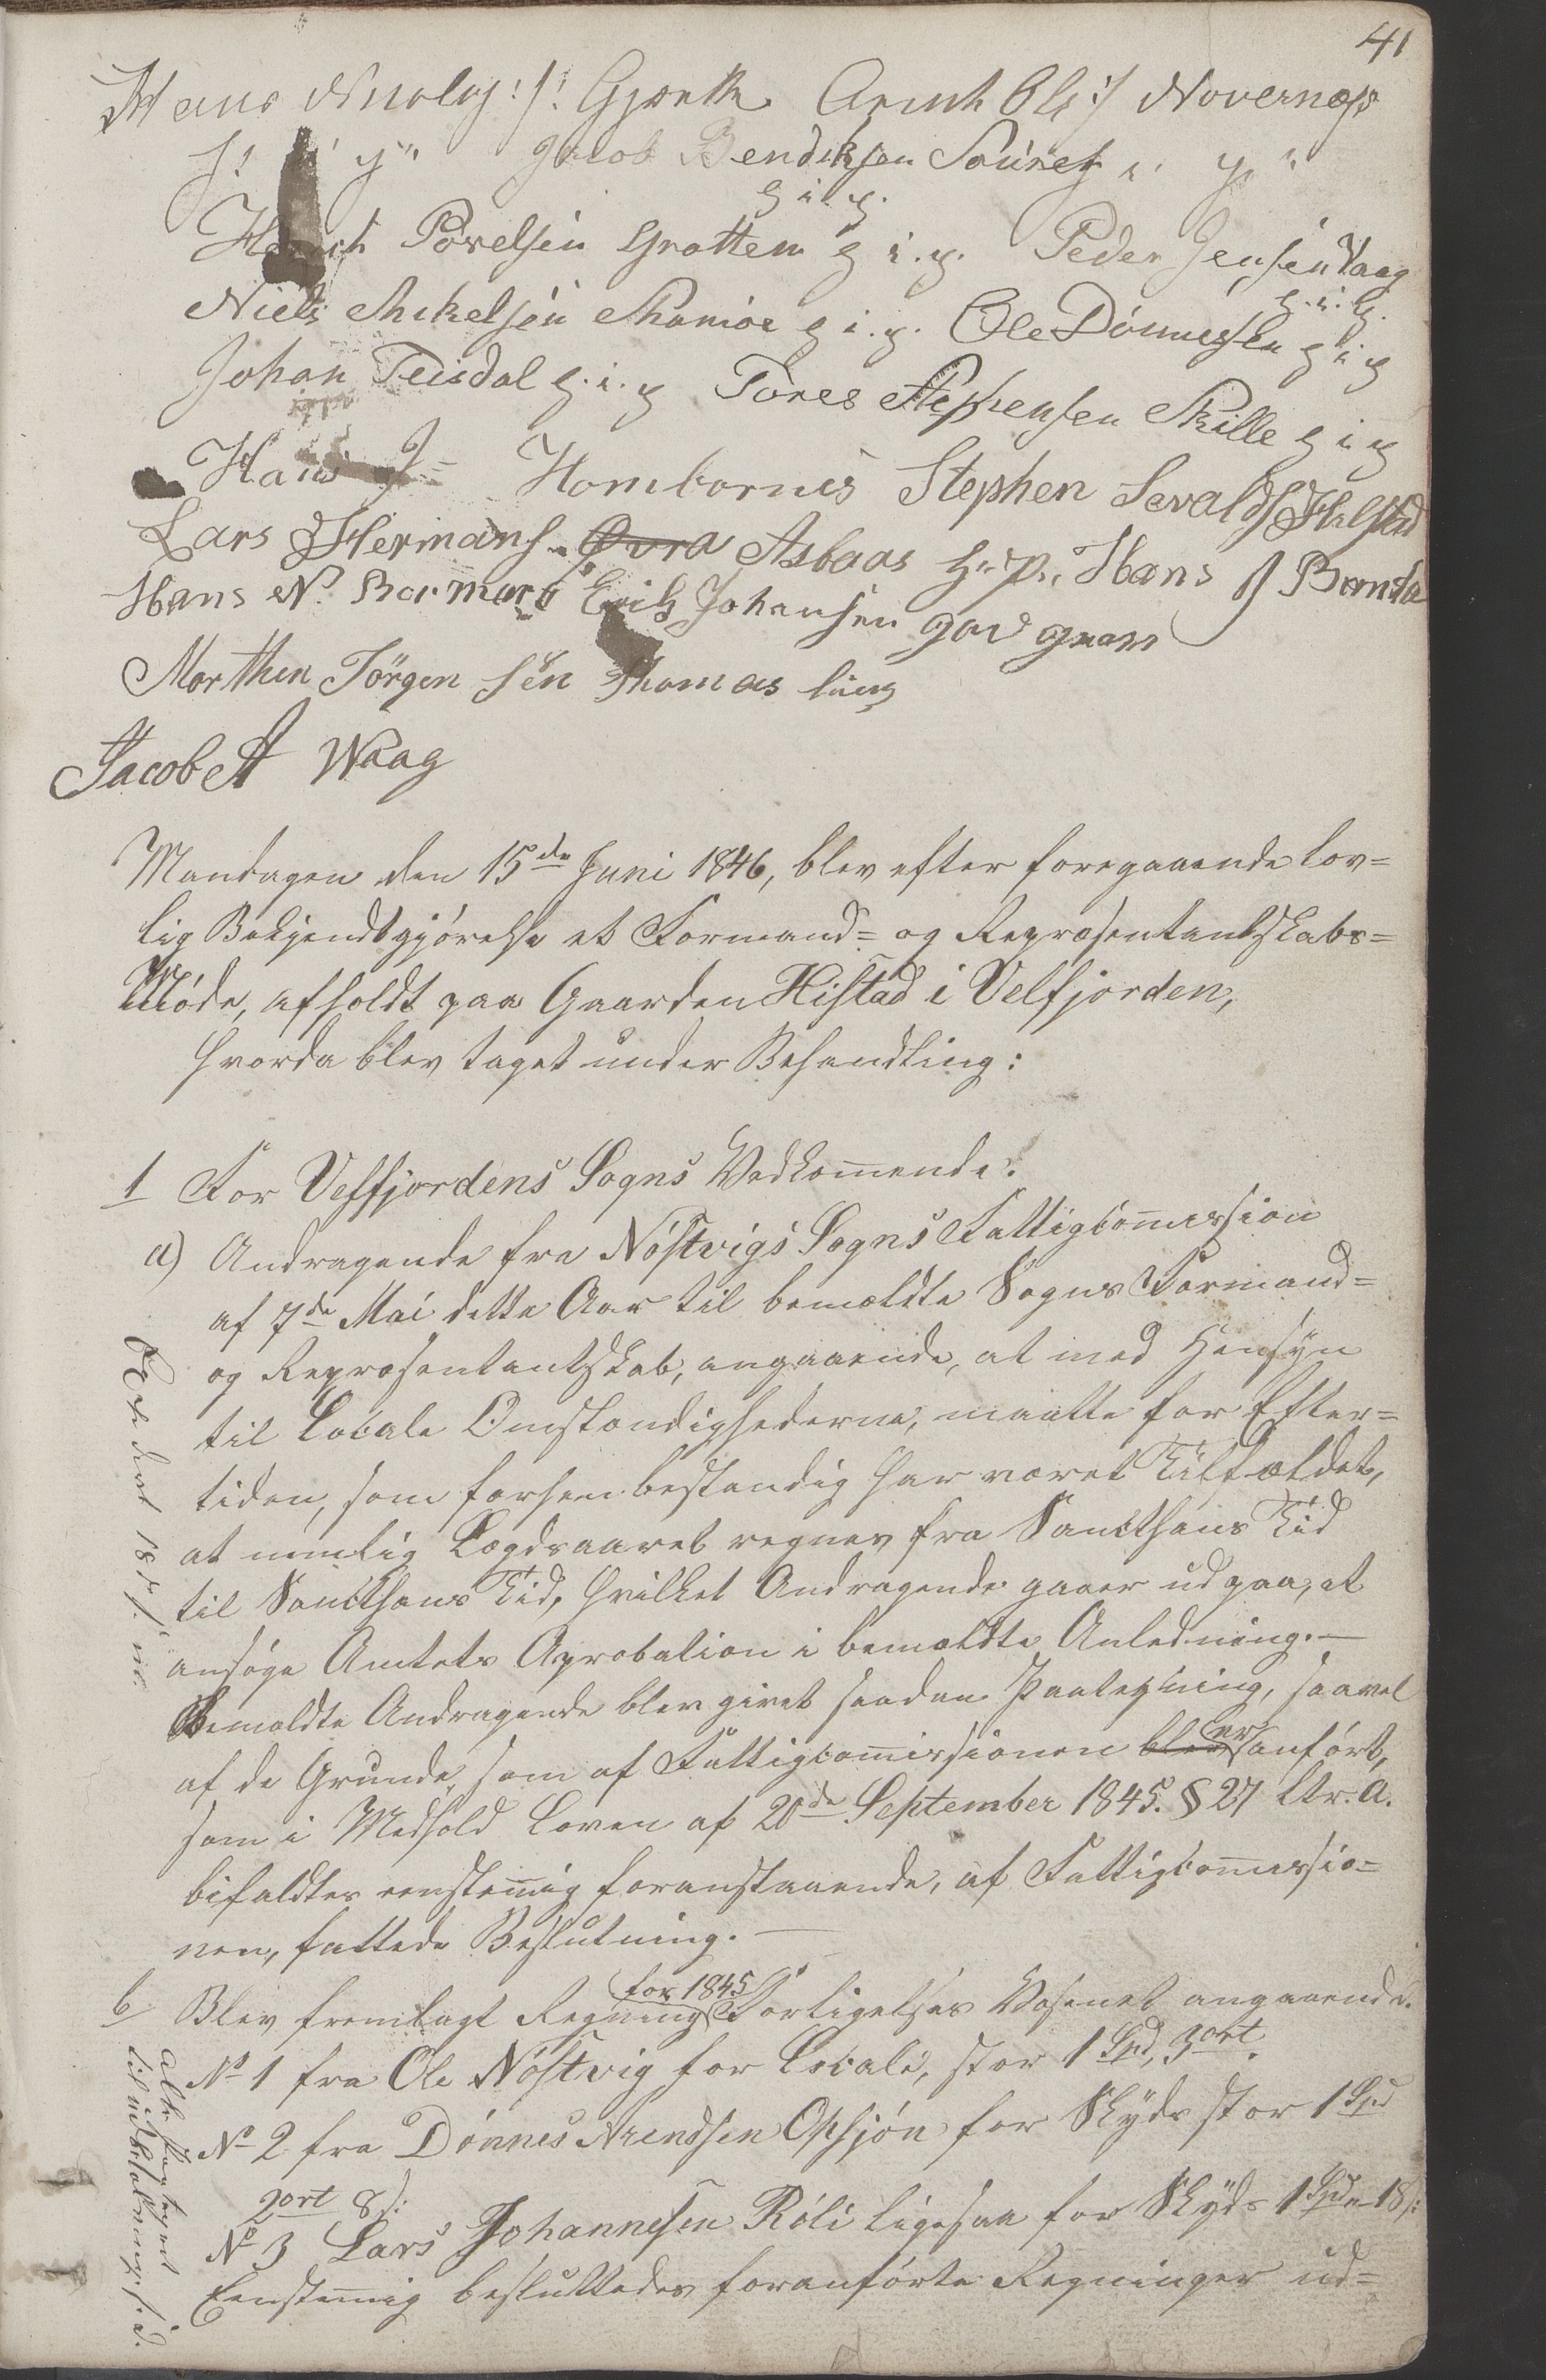 41
Hans Nicolaj:s: Gjerde Arnt Ols: Novernæs
Jacob Bendiksen Sauren
g i. g.
Povelsen Grotten g i. p. Peder Jensen Vaag
g. i. g.
Niels Mikelsen Skomoe g i. p. Ole Dönnesen g i g
Johan Teisdal g. i. g Tores Stephensen Skille g i g
Hans J Hombornes Stephen Sevalds Hilstad
Lars Hermans. Øvra Asbaas Hans J
Hans N. Bormark Erik Johansen
Morthen Jörgen sen Thomas
Jacob A Waag
Mandagen den 15de Juni 1846, blev efter foregaaende lov=
lig Bekjendtgjörelse et Formand= og Repræsentantskabs=
Möde, afholdt paa Gaarden Hilstad i Velfjorden,
hvorda blev taget under Behandling:
1 For Velfjordens Sogns Vedkommende.
a) Andragende fra Nöstvigs Sogns Fattigcommission
af 7de Mai dette Aar til bemældte Sogns Formand=
og Repræsentantskab, angaaende, at med Hensyn
til Locale Omstændighederne, maatte for Efter=
tiden, som forhen bestandig har været Tilfældet,
at nemlig Lægdsaaret regnes fra Sancthans Tid
til Sancthans Tid, hvilket Andragende gaaer ud paa, at
ansöge Amtets Aprobation i bemældte Anledning.—
Bemældte Andragende blev givet saadan Paategning, saavel
af de Grunde, som af Fattigcommissionen blev er anfört,
som i Medhold Loven af 20de September 1845. § 27 Ltr. a.
bifaldtes eenstemmig foranstaaende, af Fattigcommissio=
nen, fattede Beslutning.—
b Blev fremlagt Regning for 1845 Forligelses Væsenet angaaende.
No 1 fra Ole Nöstvig for Locale, stor 1 Spd, 3 ort.
No 2 fra Dönnes Arendsen Opsjön for Skyds stor 1 Spd
2 ort 8 s:
No 3 Lars Johannesen Röli ligesaa for Skyds 1 Spd " 18 s:
Eenstemmig besluttedes foranförte Regninger ud=
Exp.